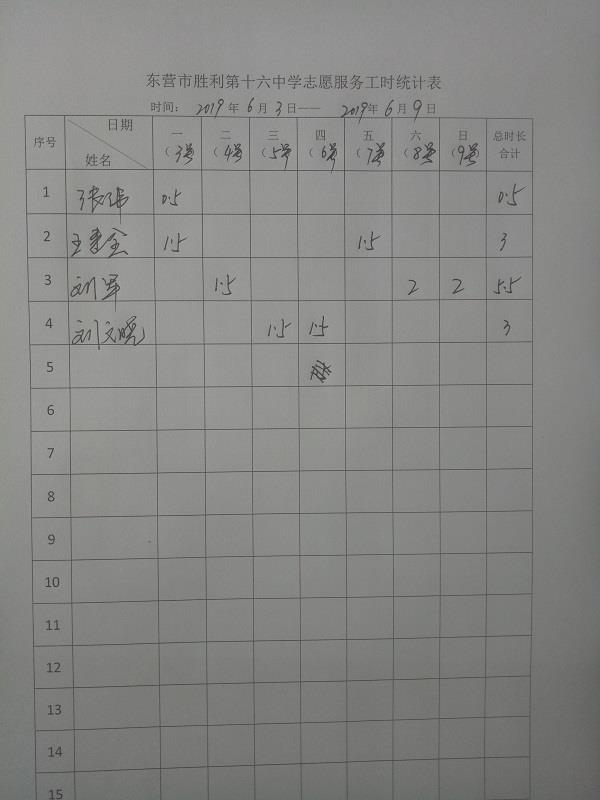 东营市胜利第十六中学志愿服务工时统计表
时间： 2019 年 6 月 3 日—— 2019年 6 月 9 日
序号 日期 姓名 一（3号 二（4号 三（5号 四（6号 五（7号 六（8号 日（9号 总时长合计
1 张伟 0.5 0.5
2 王 1.5 1.5 3
3 刘军 1.5 2 2 5.5
4 刘文晓 1.5 1.5 3
5
6
7
8
9
10
11
12
13
14
15